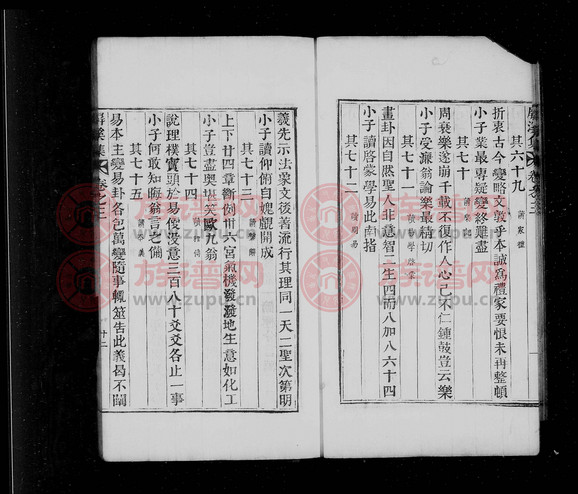 其六十九 讀家禮
折衷古今變略文敦乎本誠爲禮家要恨未再整頓
小子業最專疑變終難盡
其七十
周衰樂遂崩千載不復作人心己不仁鍾鼓豈云樂
小子受濂翁論樂最精切
其七十一 讀易學啓蒙
畫卦因自然聖人非意智二生四而八加八六十四
小子讀啓蒙學易此南指
其七十二 讀周易
羲先示法象文後善流行其理同一天二聖次第明
小子讀仰俯自媿龎開成
其七十三
上下廿四章斷例卅六宮氣機發潑地生意如化工
小子豈盡與堪笑歐九翁
其七十四
說理樸實頭於易俊没意三百八十爻爻各止一事
小子何敢知晦翁言之備
其七十五
易本主變易卦各包萬變隨事輒筮告此義曷不闡
屛溪集
卷之三
十三
族谱网
www.zupu.cn